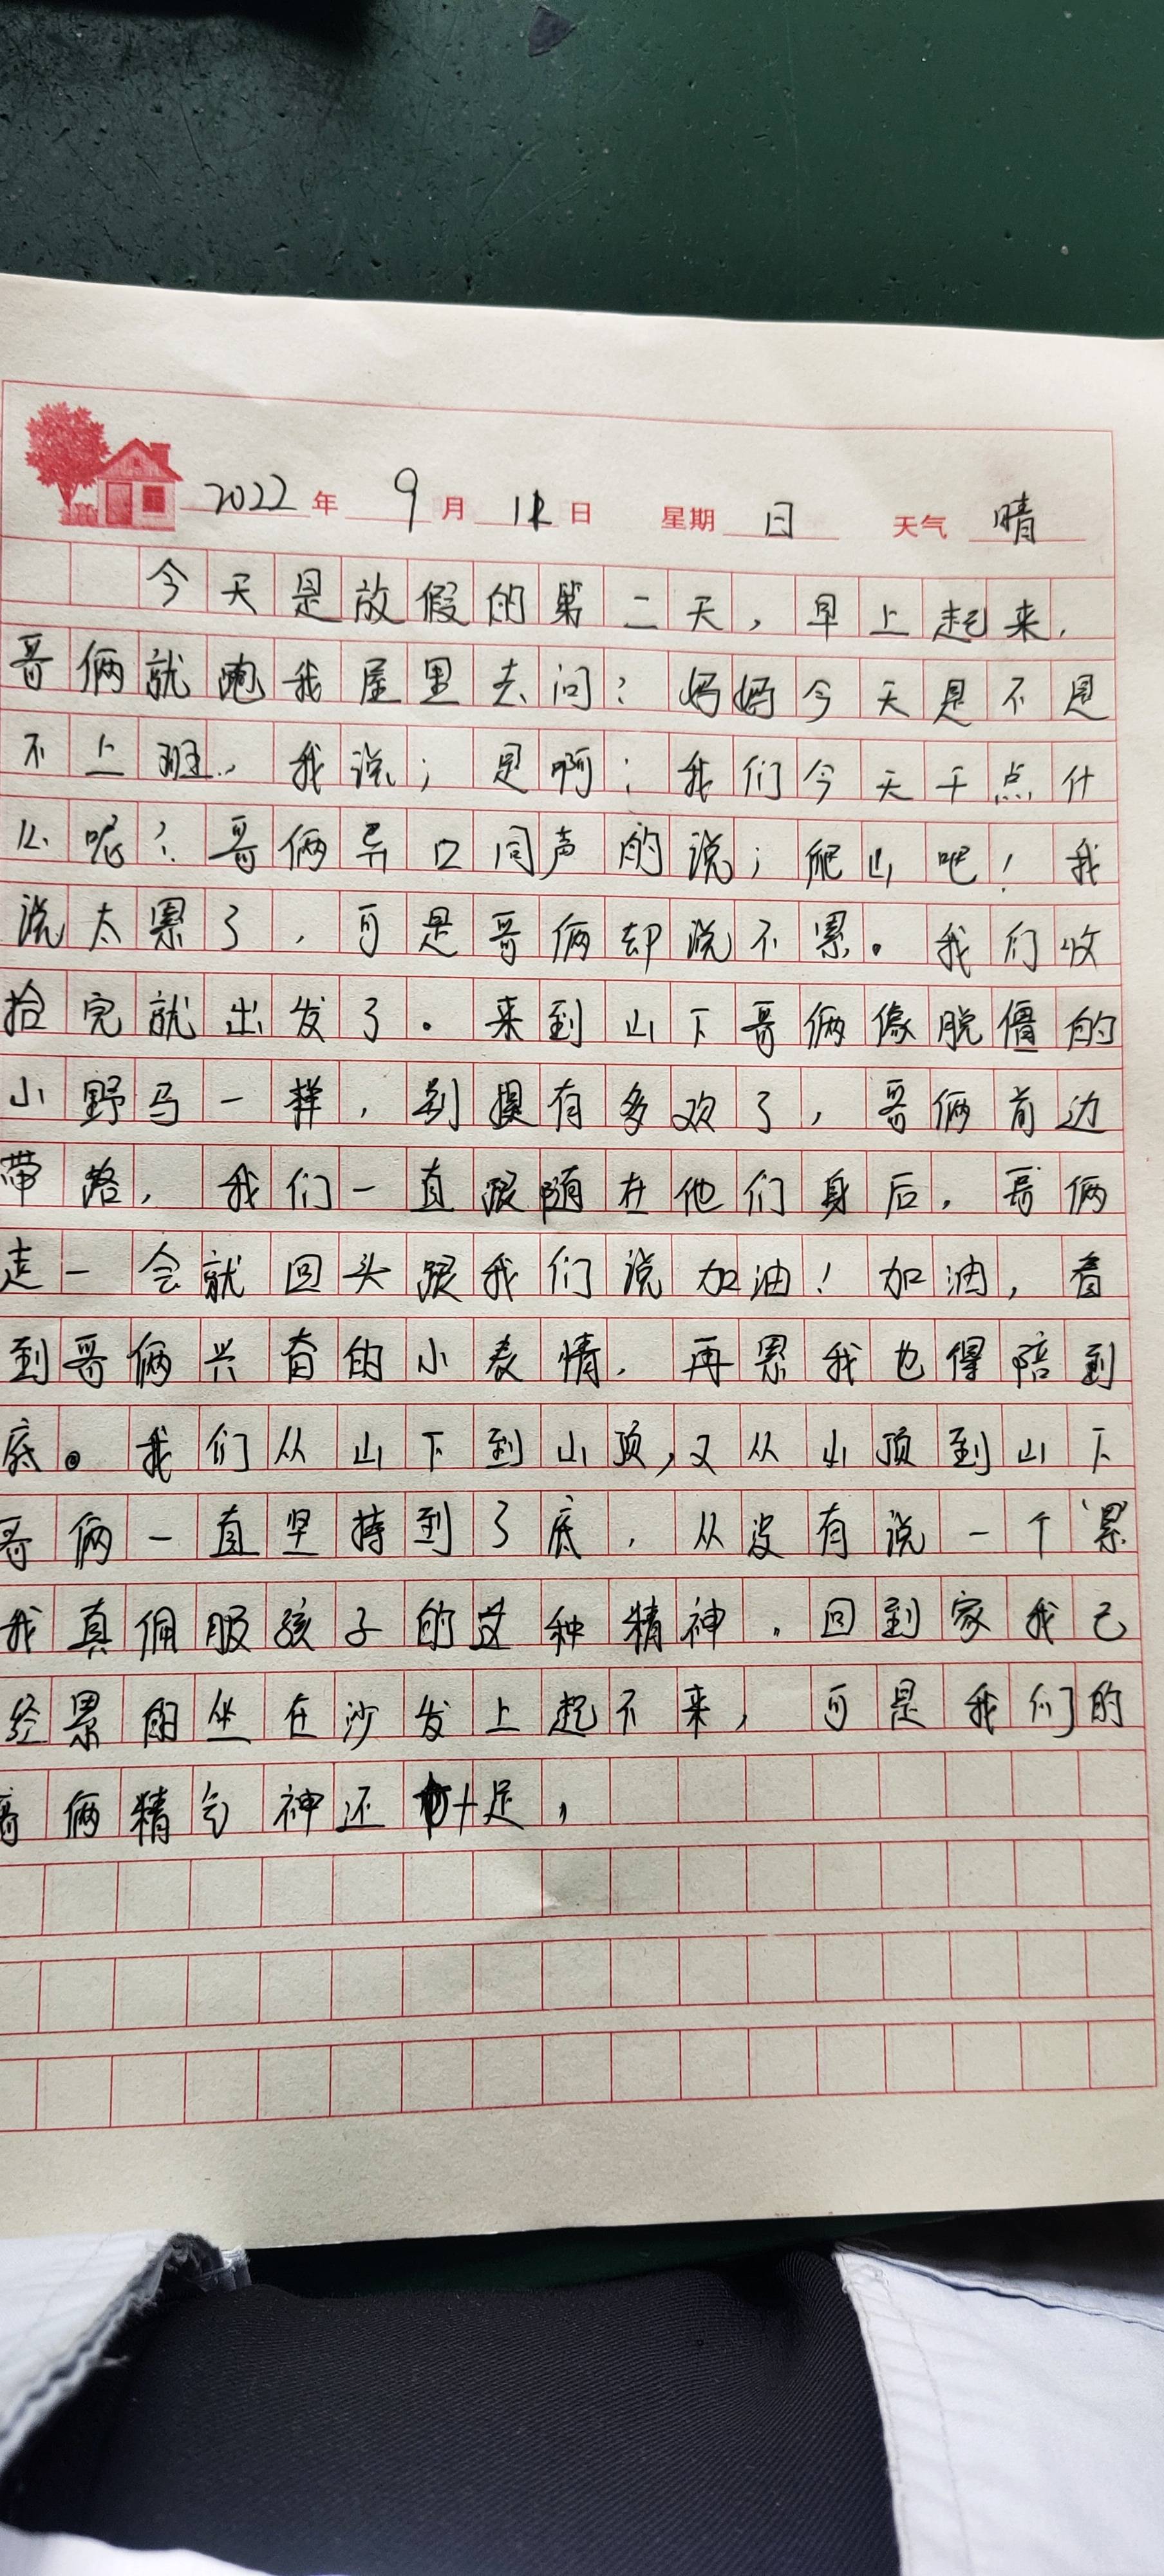 2022 年 9 月 11 日 星期 日 天气 晴
今天是放假的第二天，早上起来，
哥俩就跑我屋里去问？妈妈今天是不是
不上班，我说；是啊；我们今天干点什
么呢？哥俩异口同声的说；爬山吧！我
说太累了，可是哥俩却说不累。我们收
拾完就出发了。来到山下哥俩像脱僵的
小野马一样，别提有多欢了，哥俩前边
带路，我们一直跟随在他们身后，哥俩
走一会就回头跟我们说加油！加油，看
到哥俩兴奋的小表情，再累我也得陪到
底。我们从山下到山顶，又从山顶到山下
哥俩一直坚持到了底，从没有说一个累
我真佩服孩子的这种精神，回到家我已
经累的坐在沙发上起不来，可是我们的
哥俩精气神还十足，